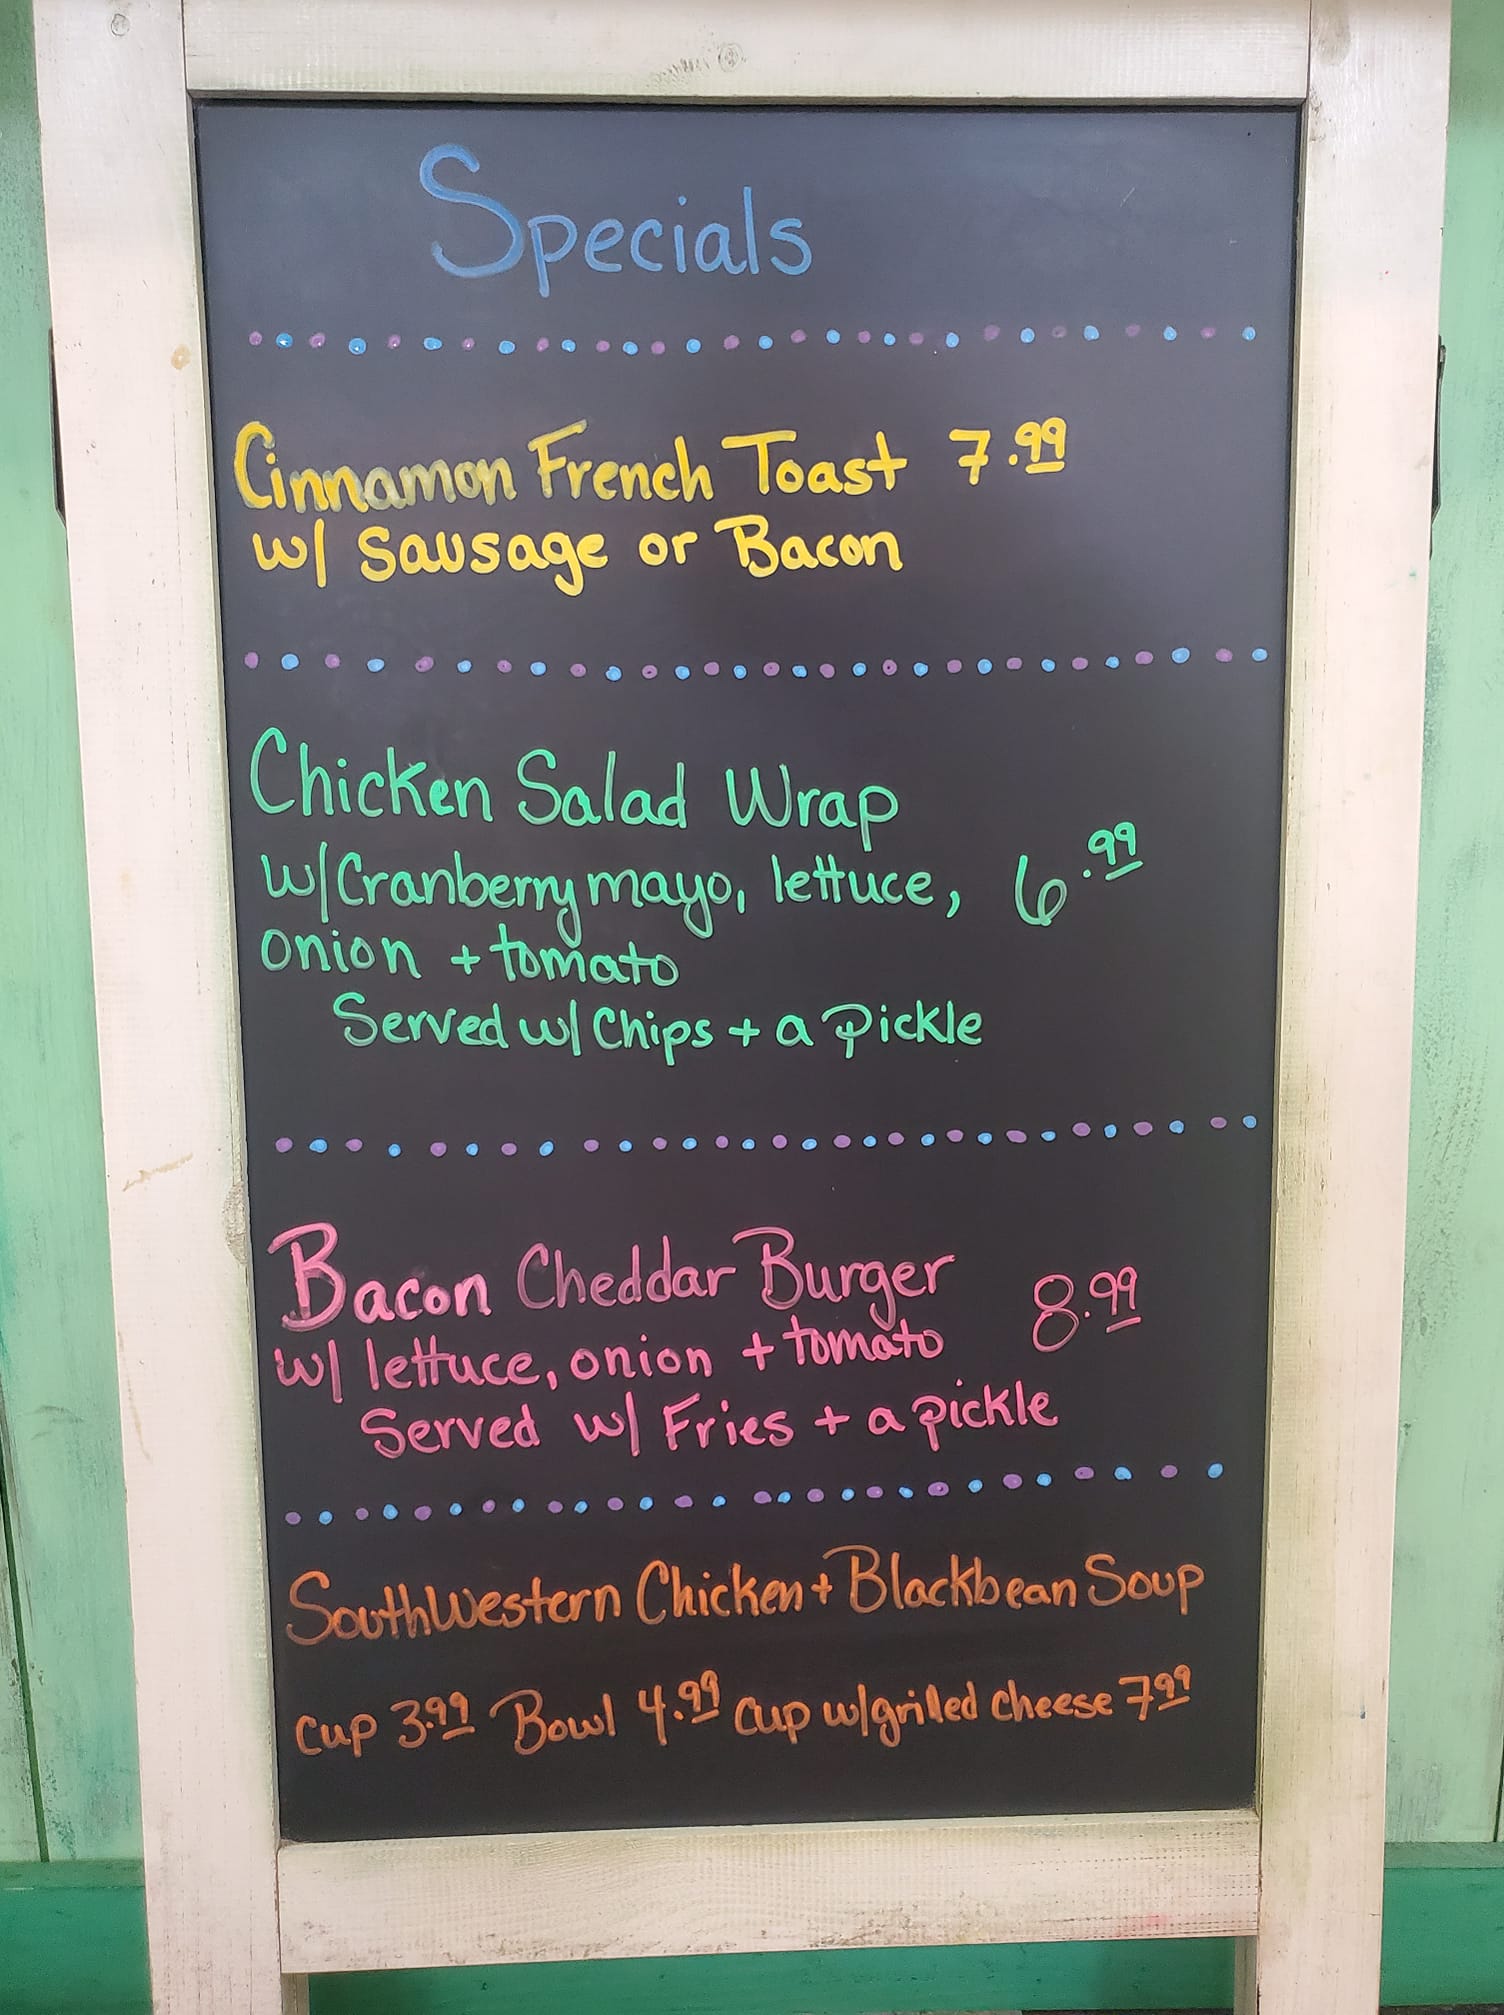 Specials
Cinnamon French Toast 7.99
w/ Sausage or Bacon
Chicken Salad Wrap
w/ Cranberry mayo, lettuce, 6.99
onion + tomato
Served w/ Chips + a Pickle
Bacon Cheddar Burger 8.99
w/ lettuce, onion + tomato
Served w/ Fries + a pickle
SouthWestern Chicken + Blackbean Soup
Cup 3.99 Bowl 4.99 Cup w/ grilled cheese 7.99